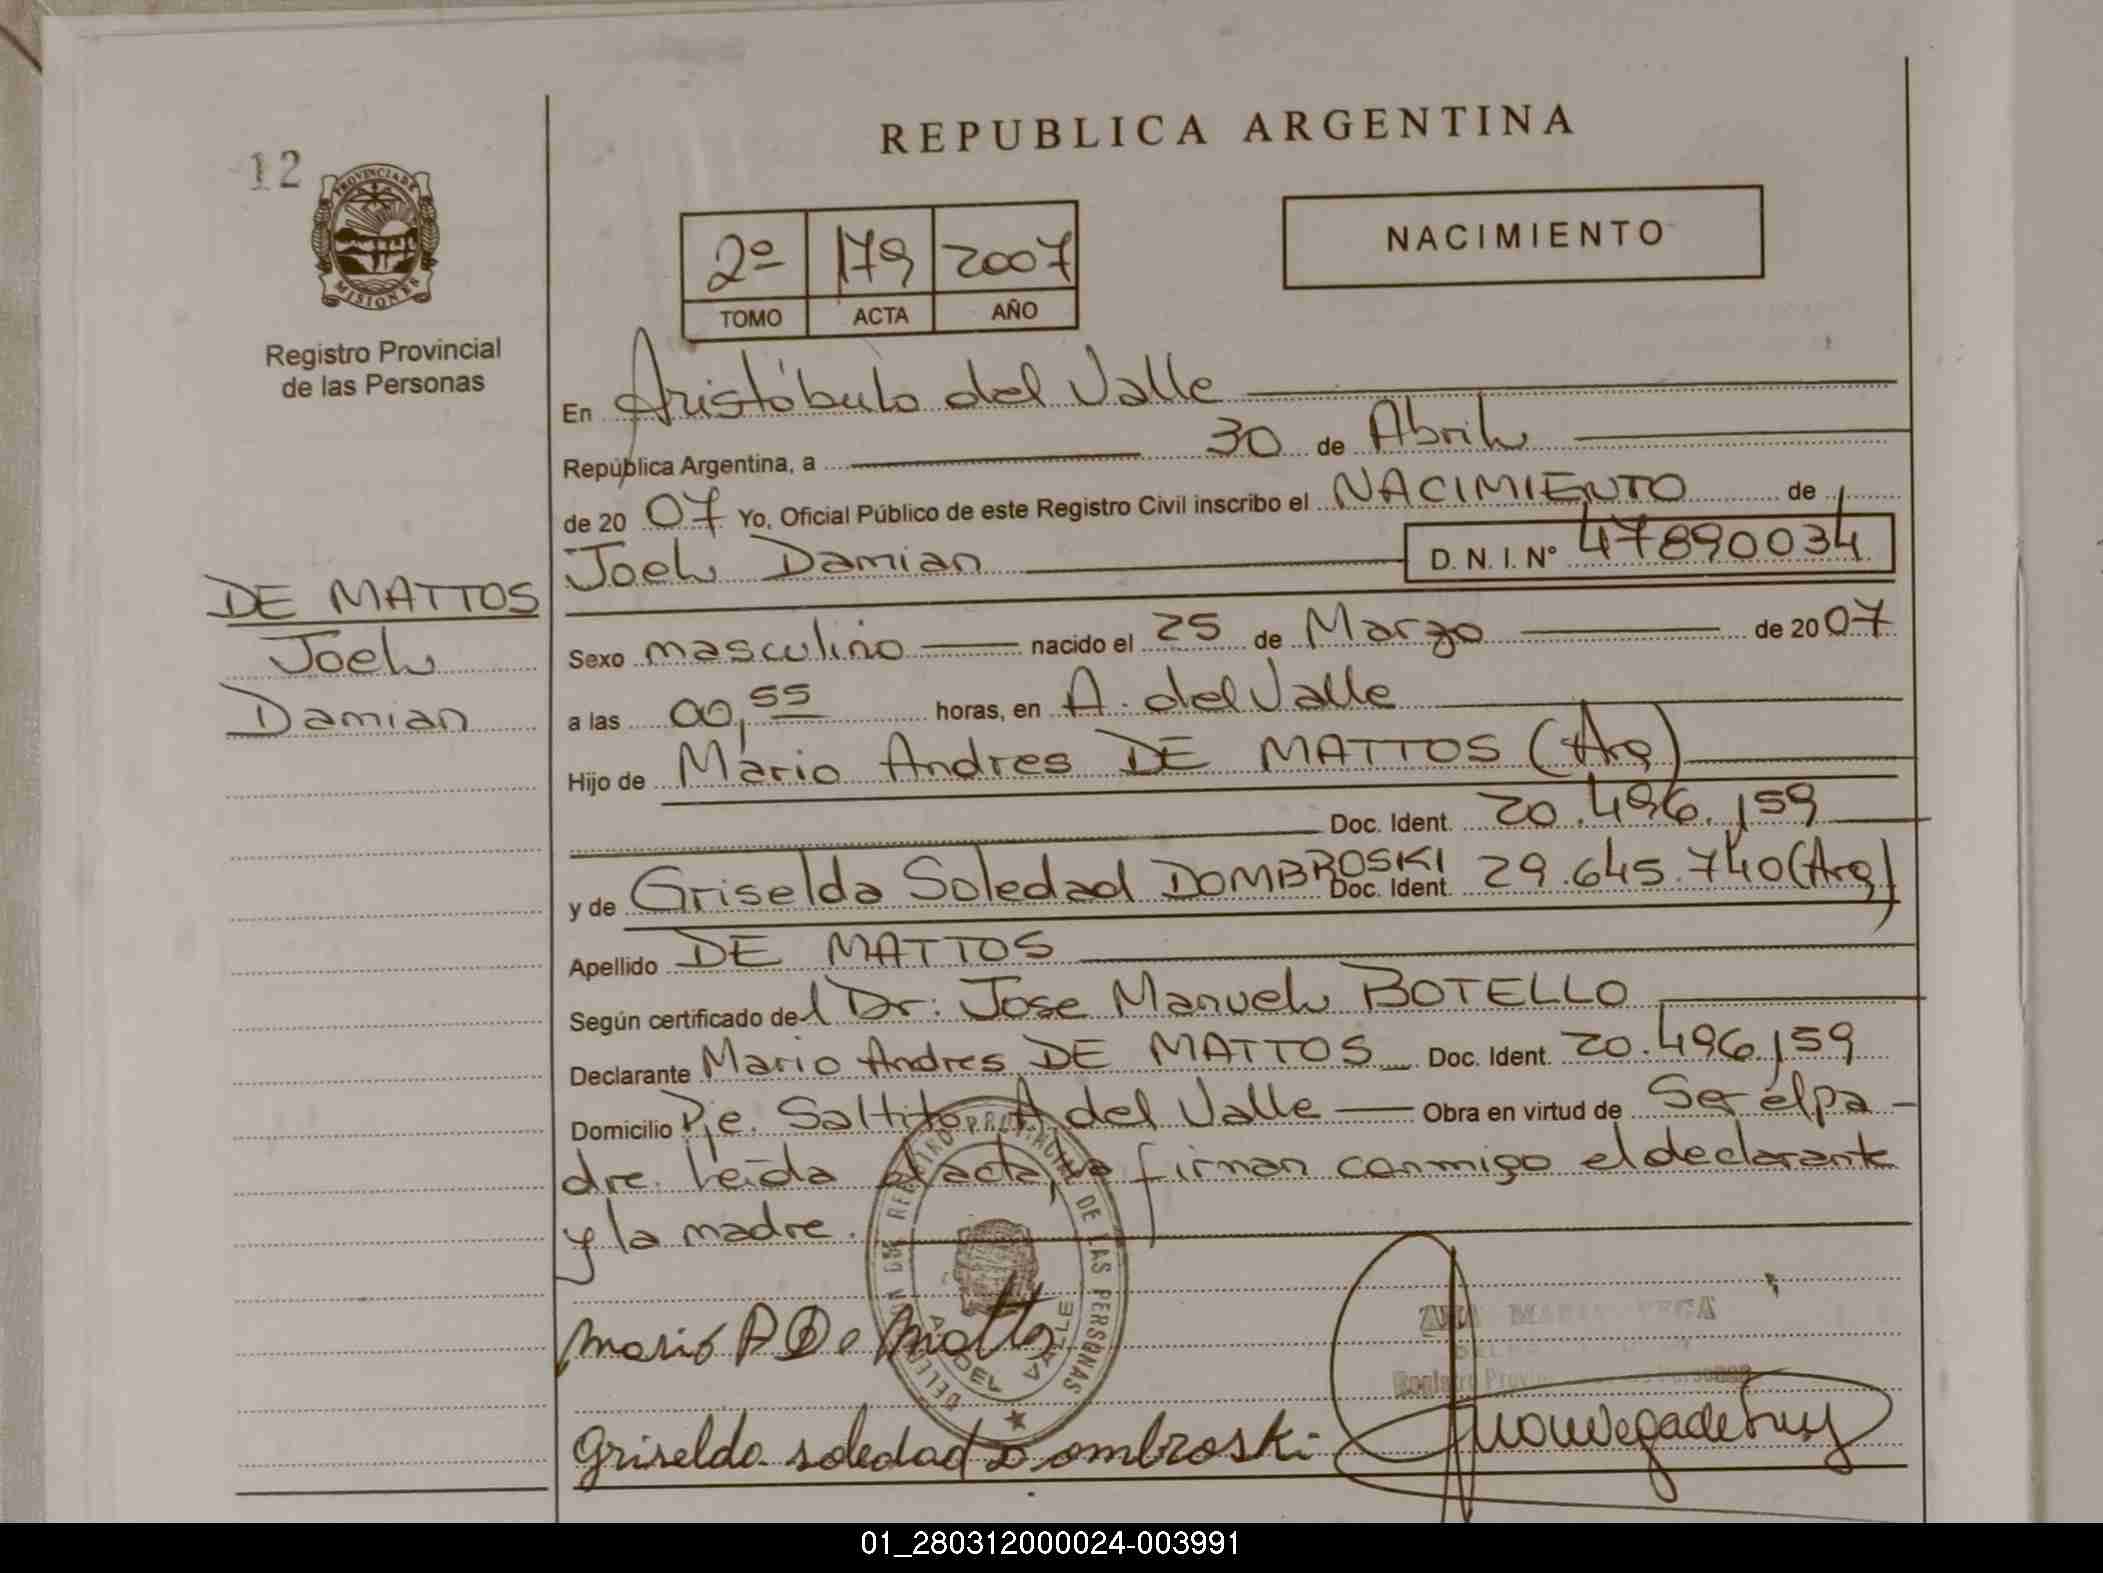 12
PROVINCIA DE
MISIONES
Registro Provincial
de las Personas
REPUBLICA ARGENTINA
2º 179 2007
TOMO ACTA AÑO
NACIMIENTO
En Aristóbulo del Valle
República Argentina, a 30 de Abril
de 2007 Yo, Oficial Público de este Registro Civil inscribo el NACIMIENTO de
Joel Damian D. N. I. Nº 47890034
DE MATTOS
Joel
Damian
Sexo masculino nacido el 25 de Marzo de 2007
a las 00,55 horas, en A. del Valle
Hijo de Mario Andres DE MATTOS (Arg)
Doc. Ident. 20.496.159
y de Griselda Soledad DOMBROSKI Doc. Ident. 29.645.740 (Arg)
Apellido DE MATTOS
Según certificado del Dr: Jose Manuel BOTELLO
Declarante Mario Andres DE MATTOS Doc. Ident. 20.496.159
Domicilio Pje. Saltito A del Valle Obra en virtud de Ser el pa-
dre. Leida el acta, la firman conmigo el declarante
y la madre.
DELEGACION DE REGISTRO PROVINCIAL DE LAS PERSONAS
A. DEL VALLE
Mario A De Matto
ANA MARIA VEGA
Registro Provincial de las Personas
Griselda soledad Dombroski
01_280312000024-003991